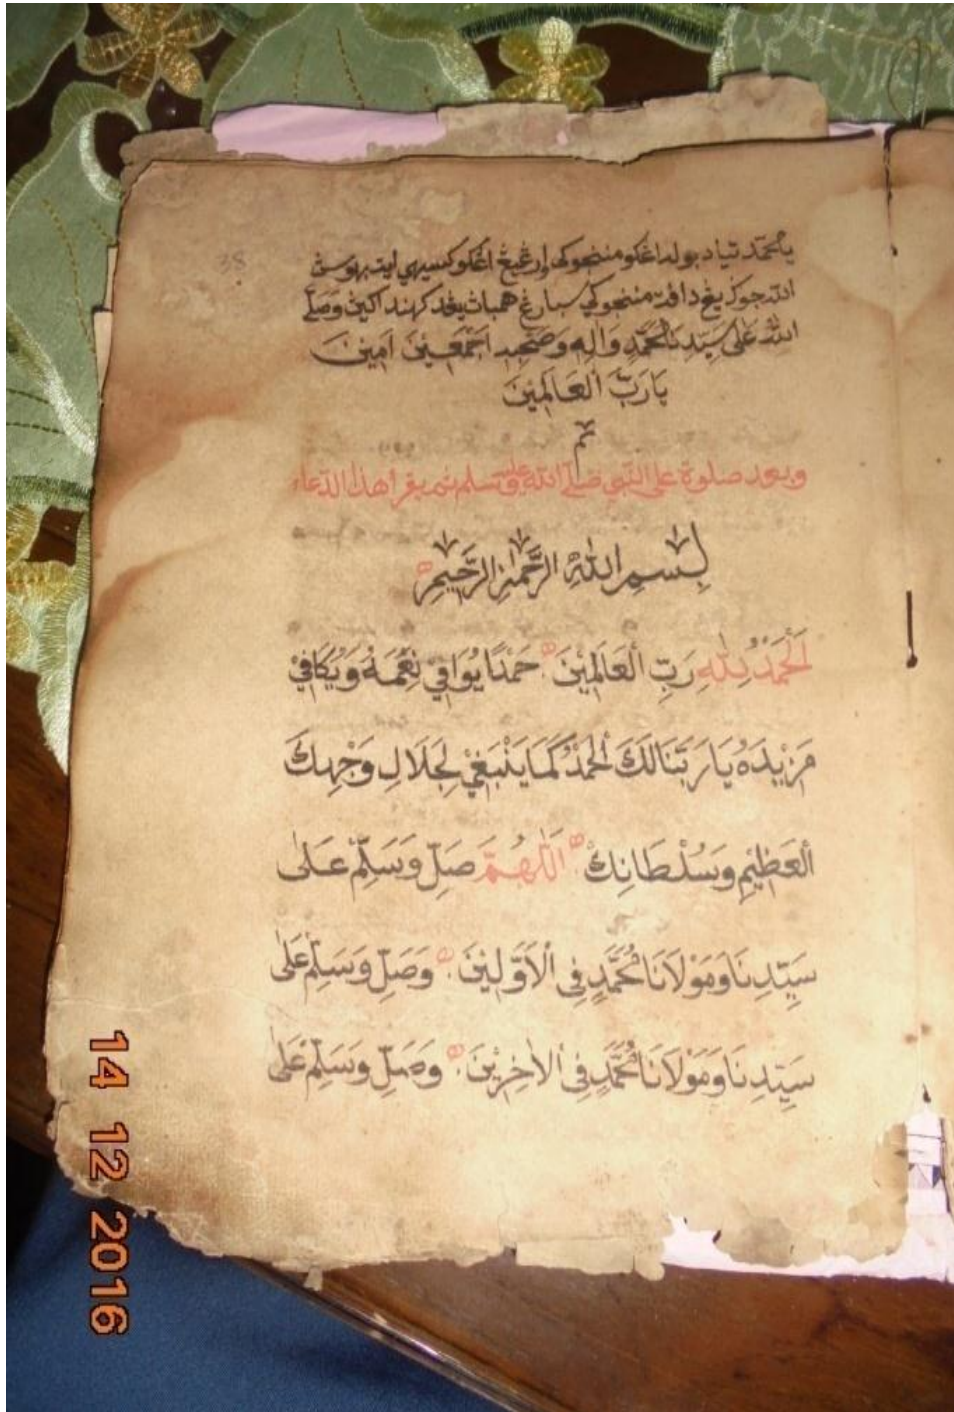 38
يا محمد تياد بوله اڠكو منونجوكي اورڠ يڠ اڠكو كسيهي ايت بهوسڽ
الله جوݢ يڠ داڤت منونجوكي بارڠ همباڽ يڠ دكهنداكيڽ وصلى
الله على سَيِّدِنَا مُحَمَّدٍ وَاٰلِهِ وَصَحْبِهِ اَجْمَعِيْنَ اٰمِيْنَ
يَارَبَّ الْعَالَمِيْنَ
تم
وبعد صلوة على النبي صلى الله عليه وسلم ثم يقرأ هذا الدعاء
بِسْمِ اللهِ الرَّحْمٰنِ الرَّحِيْمِ
اَلْحَمْدُ لِلّٰهِ رَبِّ الْعَالَمِيْنَ حَمْدًا يُوَافِيْ نِعَمَهُ وَيُكَافِيْ
مَزِيْدَهُ يَا رَبَّنَا لَكَ الْحَمْدُ كَمَا يَنْبَغِيْ لِجَلَالِ وَجْهِكَ
الْعَظِيْمِ وَسُلْطَانِكَ اَللّٰهُمَّ صَلِّ وَسَلِّمْ عَلٰى
سَيِّدِنَا وَمَوْلَانَا مُحَمَّدٍ فِى الْاَوَّلِيْنَ وَصَلِّ وَسَلِّمْ عَلٰى
سَيِّدِنَا وَمَوْلَانَا مُحَمَّدٍ فِى الْاٰخِرِيْنَ وَصَلِّ وَسَلِّمْ عَلٰى
14 12 2016